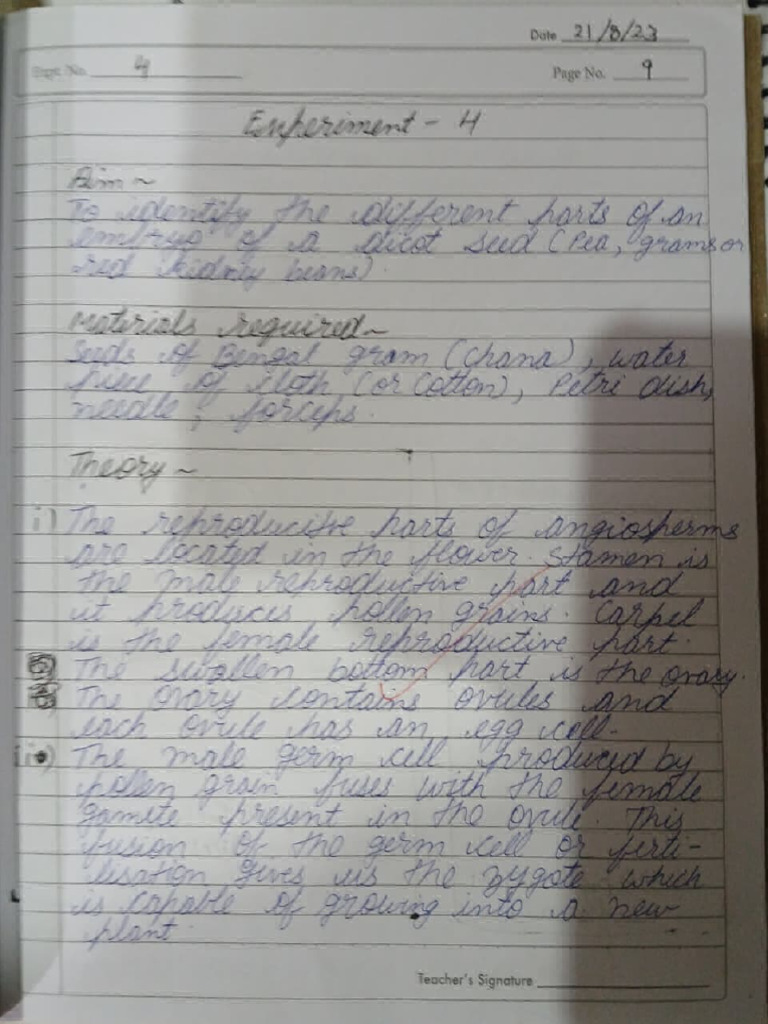 Date 21/8/23
Expt. No. 4
Page No. 9
Experiment - 4
Aim ~
To identify the different parts of an
embryo of a dicot seed (Pea, grams or
red kidney beans)
Materials required ~
Seeds of Bengal gram (chana), water
piece of cloth (or cotton), Petri dish,
needle, forceps.
Theory ~
i) The reproductive parts of angiosperms
are located in the flower. Stamen is
the male reproductive part and
it produces pollen grains. Carpel
is the female reproductive part.
The swallen bottom part is the ovary.
The ovary contains ovules and
each ovule has an egg cell.
ii) The male germ cell produced by
pollen grain fuses with the female
gamete present in the ovule. This
fusion of the germ cell or ferti-
lisation gives us the zygote which
is capable of growing into a new
plant.
Teacher's Signature